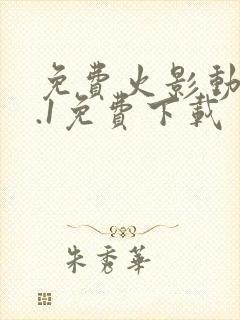 免費火影動
.1免費下載
朱秀華